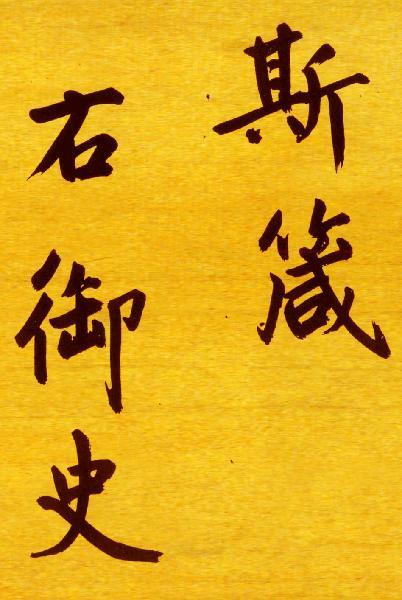 斯箴
右御史